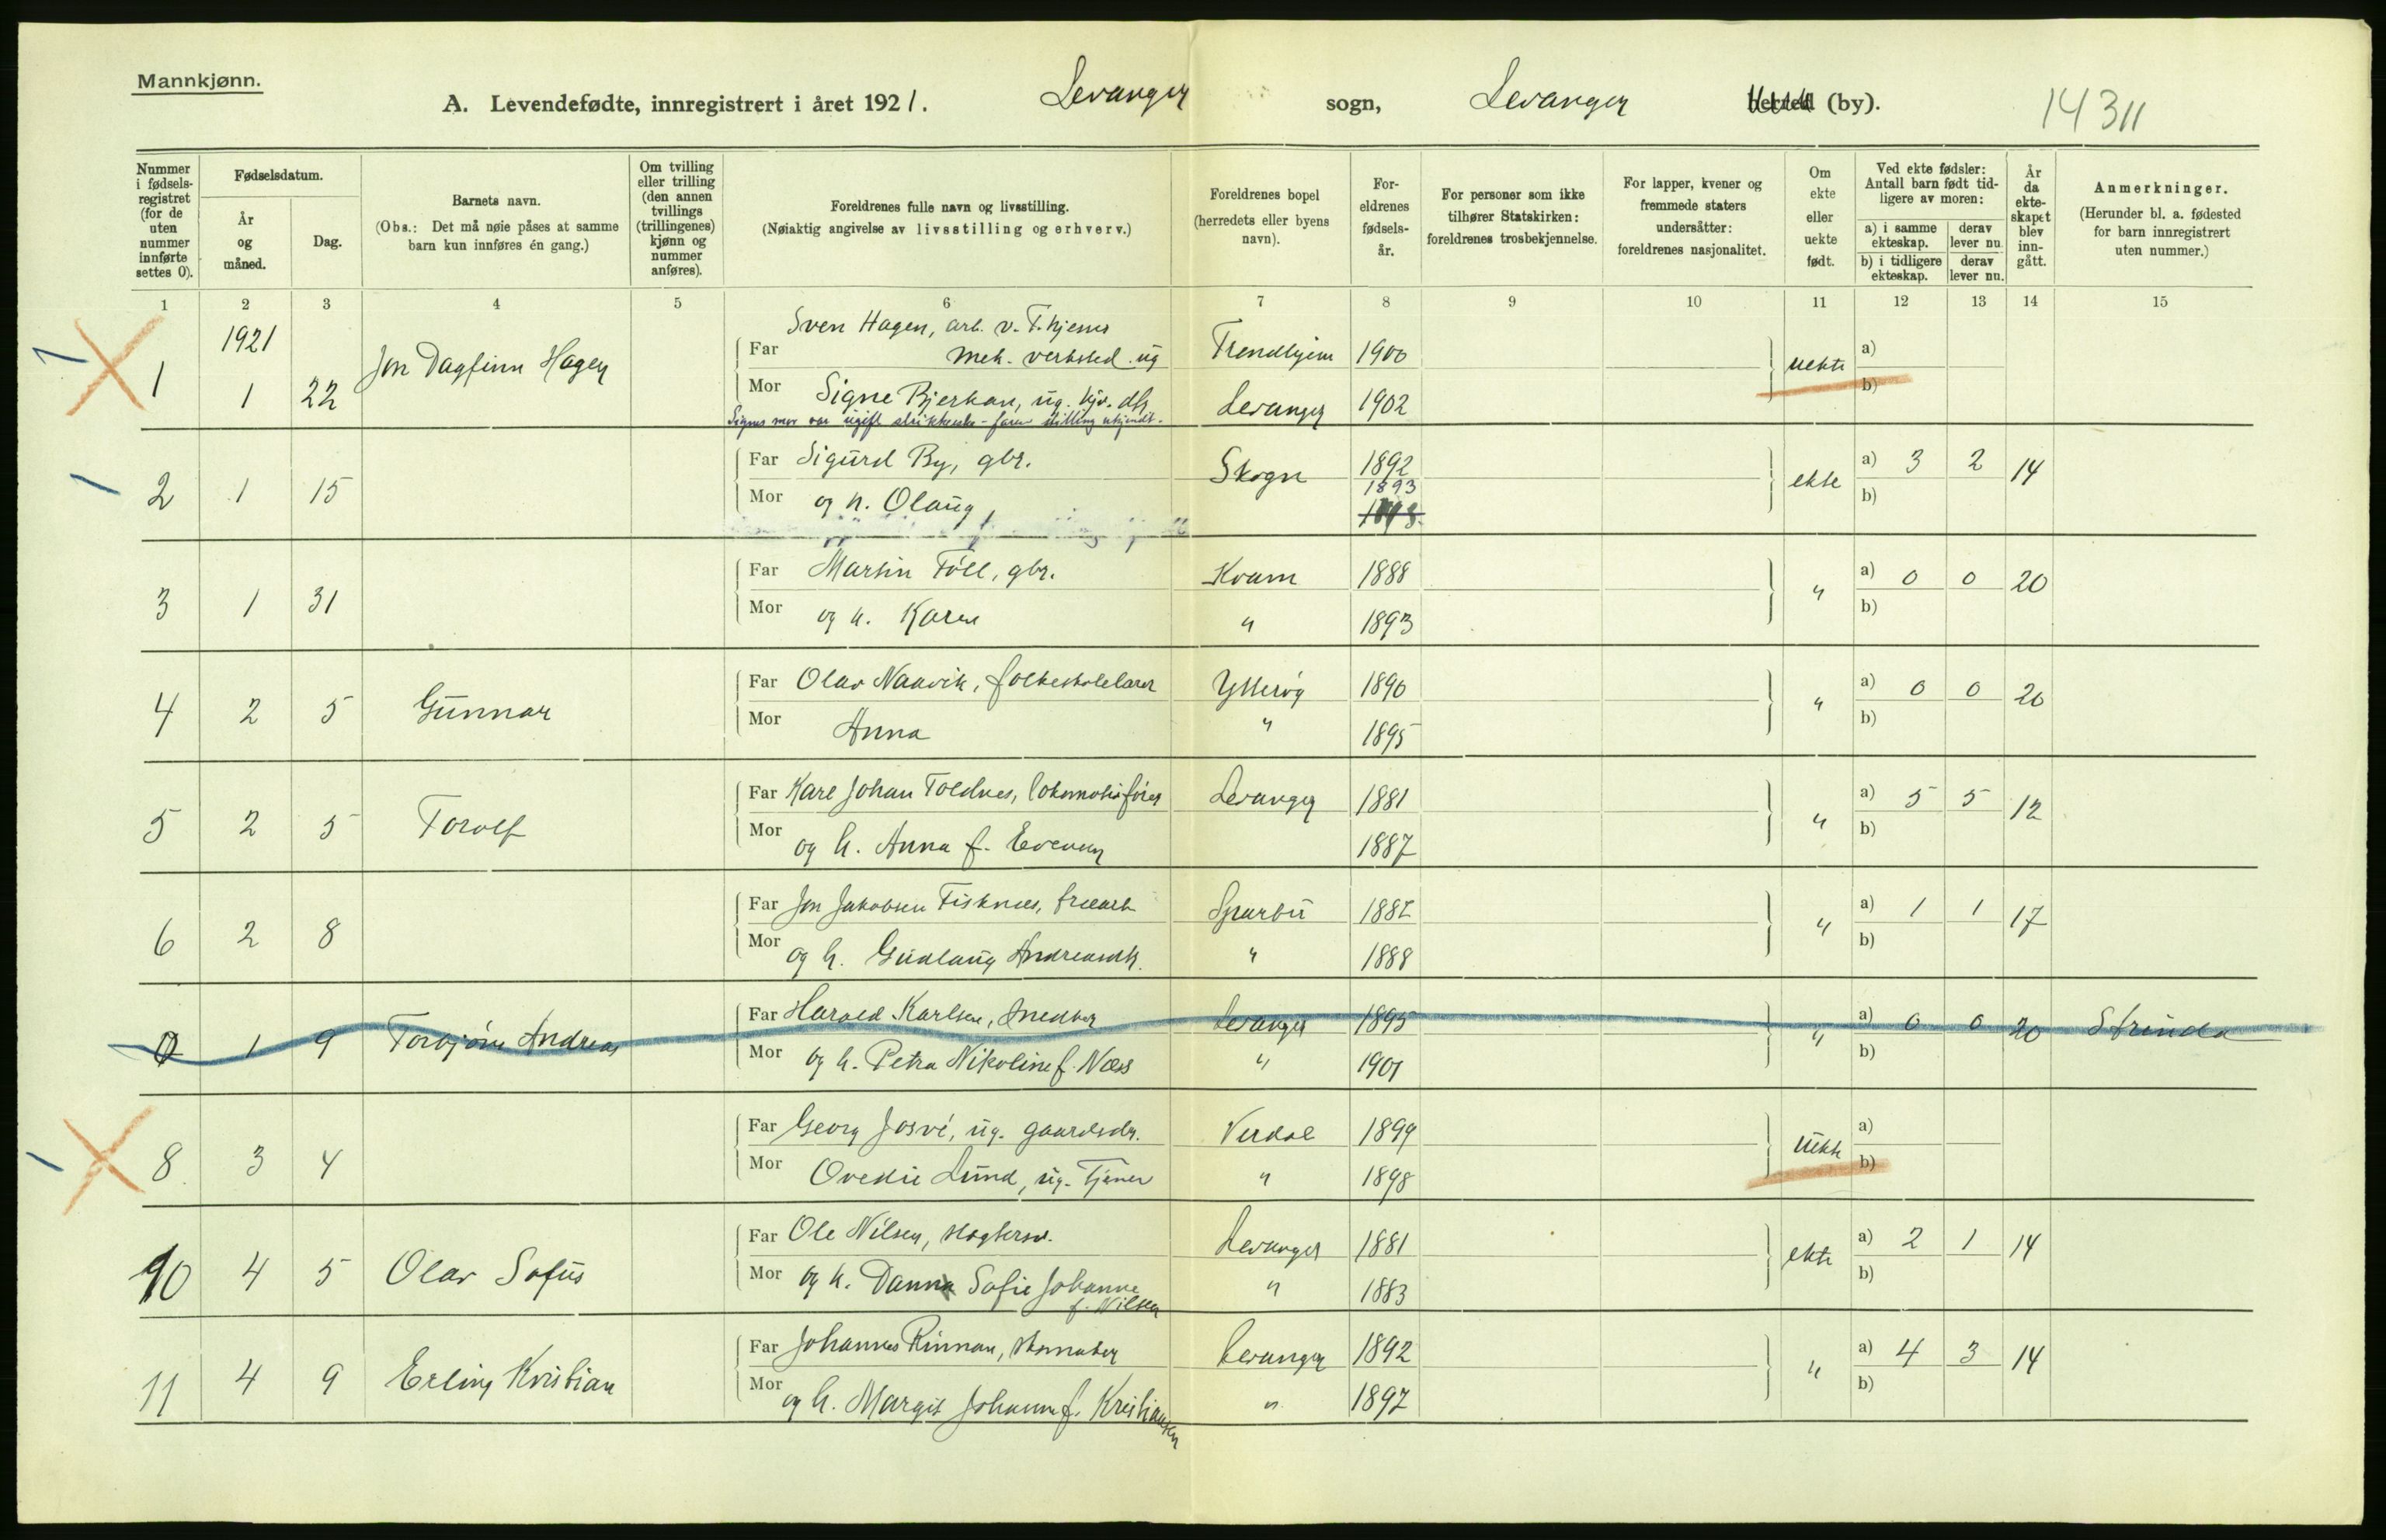 Mannkjønn.
A. Levendefødte, innregistrert i året 1921. Levanger sogn, Levanger herred (by). 14311
Nummer i fødselsregistret (for de uten nummer innførte settes 0).
Fødselsdatum.
År og måned.
Dag.
Barnets navn.
(Obs.: Det må nøie påses at samme barn kun innføres én gang.)
Om tvilling eller trilling (den annen tvillings (trillingenes) kjønn og nummer anføres).
Foreldrenes fulle navn og livsstilling.
(Nøiaktig angivelse av livsstilling og erhverv.)
Foreldrenes bopel (herredets eller byens navn).
Foreldrenes fødselsår.
For personer som ikke tilhører Statskirken: foreldrenes trosbekjennelse.
For lapper, kvener og fremmede staters undersåtter: foreldrenes nasjonalitet.
Om ekte eller uekte født.
Ved ekte fødsler: Antall barn født tidligere av moren:
a) i samme ekteskap. derav lever nu.
b) i tidligere ekteskap. derav lever nu.
År da ekteskapet blev inngått.
Anmerkninger.
(Herunder bl. a. fødested for barn innregistrert uten nummer.)
1 2 3 4 5 6 7 8 9 10 11 12 13 14 15
1921
1 1 22 Jon Dagfinn Hagen
Far Sven Hagen, arb. v. T.hjems mek. verksted. ug Trondhjem 1900 uekte a)
Mor Signe Bjerkan, ug. hjv. dtr Levanger 1902 b)
Signes mor var ugift strikkerske - faren stilling ukjendt.
2 1 15 Far Sigurd By, gbr. Skogn 1892 ekte a) 3 2 14
Mor og h. Olaug, 1893 b)
3 1 31 Far Martin Föll, gbr. Kvam 1888 " a) 0 0 20
Mor og h. Karen " 1893 b)
4 2 5 Gunnar Far Olav Naavik, folkeskolelærer Ytterøy 1890 " a) 0 0 20
Mor Anna " 1895 b)
5 2 5 Torolf Far Karl Johan Toldnes, lokomotivfører Levanger 1881 " a) 5 5 12
Mor og h. Anna f. Evensen 1887 b)
6 2 8 Far Jon Jakobsen Fisknes, Sparbu " a) 1 1 17
Mor og h. Gudlaug Andreasdtr. " 1888 b)
0 1 9 Torbjörn Andreas Far Harald Karlsen, snekker Levanger 1895 " a) 0 0 20 Strinda
Mor og h. Petra Nikoline f. Næss " 1901 b)
8 3 4 Far Georg Josve, ug. gaardsdr. Verdal 1899 uekte a)
Mor Ovedie Lund, ug. Tjener " 1898 b)
10 4 5 Olav Sofus Far Ole Nilsen, Levanger 1881 ekte a) 2 1 14
Mor og h. Danna Sofie Johanne f. Nilsen " 1883 b)
11 4 9 Erling Kristian Far Johannes Rinnan, skomaker Levanger 1892 " a) 4 3 14
Mor og h. Margit Johanne f. Kristiansen " 1897 b)